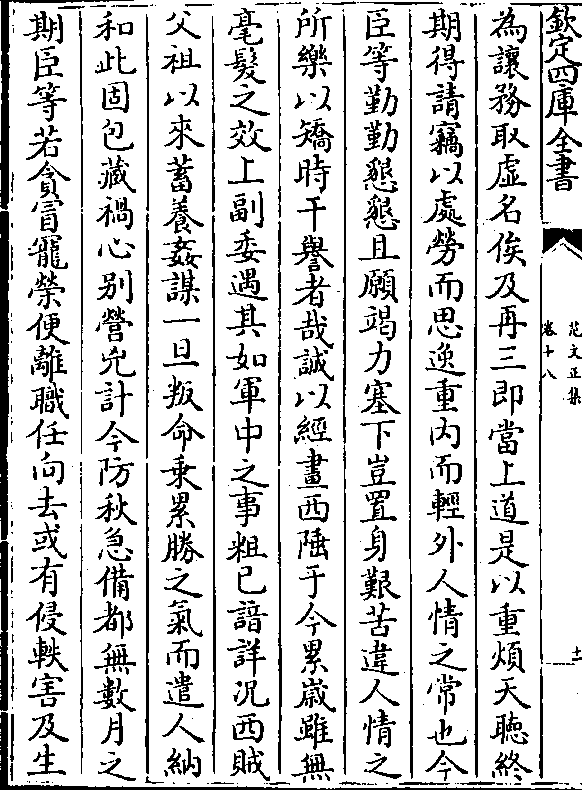 欽定四庫全書
范文正集
卷十八
十一
為讓務取虛名俟及再三即當上道是以重煩天聽終
期得請竊以處勞而思逸重内而輕外人情之常也今
臣等勤勤懇懇且願竭力塞下豈置身艱苦違人情之
所樂以矯時干譽者哉誠以經畫西陲于今累嵗雖無
毫髮之效上副委遇其如軍中之事粗已諳詳况西賊
父祖以來蓄養姦謀一旦叛命乗累勝之氣而遣人納
和此固包藏禍心别營兇計今防秋急備都無數月之
期臣等若貪冒寵榮便離職任向去或有侵軼害及生